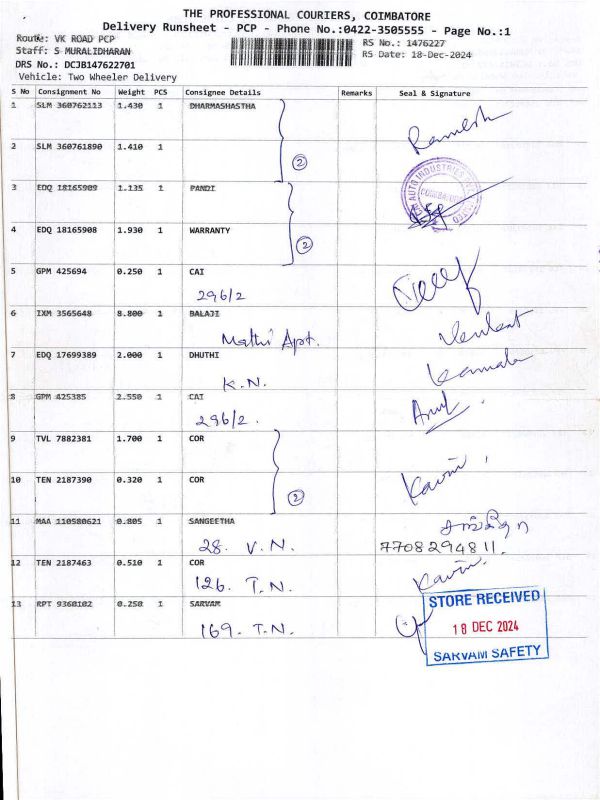 THE PROFESSIONAL COURIERS, COIMBATORE
Delivery Runsheet - PCP - Phone No.:0422-3505555 - Page No.:1
Route: VK ROAD PCP
RS No.: 1476227
Staff: S MURALIDHARAN
RS Date: 18-Dec-2024
DRS No.: DCJB147622701
Vehicle: Two Wheeler Delivery
S No Consignment No Weight PCS Consignee Details Remarks Seal & Signature
1 SLM 360762113 1.430 1 DHARMASHASTHA Ramesh
2 SLM 360761890 1.410 1 2
3 EDQ 18165909 1.135 1 PANDI
AUTO INDUSTRIES
4 EDQ 18165908 1.930 1 WARRANTY 2
5 GPM 425694 0.250 1 CAI
296/2
6 IXM 3565648 8.800 1 BALAJI
Mathi Apt. Venkat
7 EDQ 17699389 2.000 1 DHUTHI Kamala
K.N.
8 GPM 425385 2.550 1 CAI
296/2. Arul
9 TVL 7882381 1.700 1 COR
10 TEN 2187390 0.320 1 COR 2 Kavin
11 MAA 110580621 0.805 1 SANGEETHA சங்கீதா
28. V.N. 7708294811.
12 TEN 2187463 0.510 1 COR Kavin
126. T.N.
13 RPT 9360102 0.250 1 SARVAM
169. T.N.
STORE RECEIVED
18 DEC 2024
SARVAM SAFETY